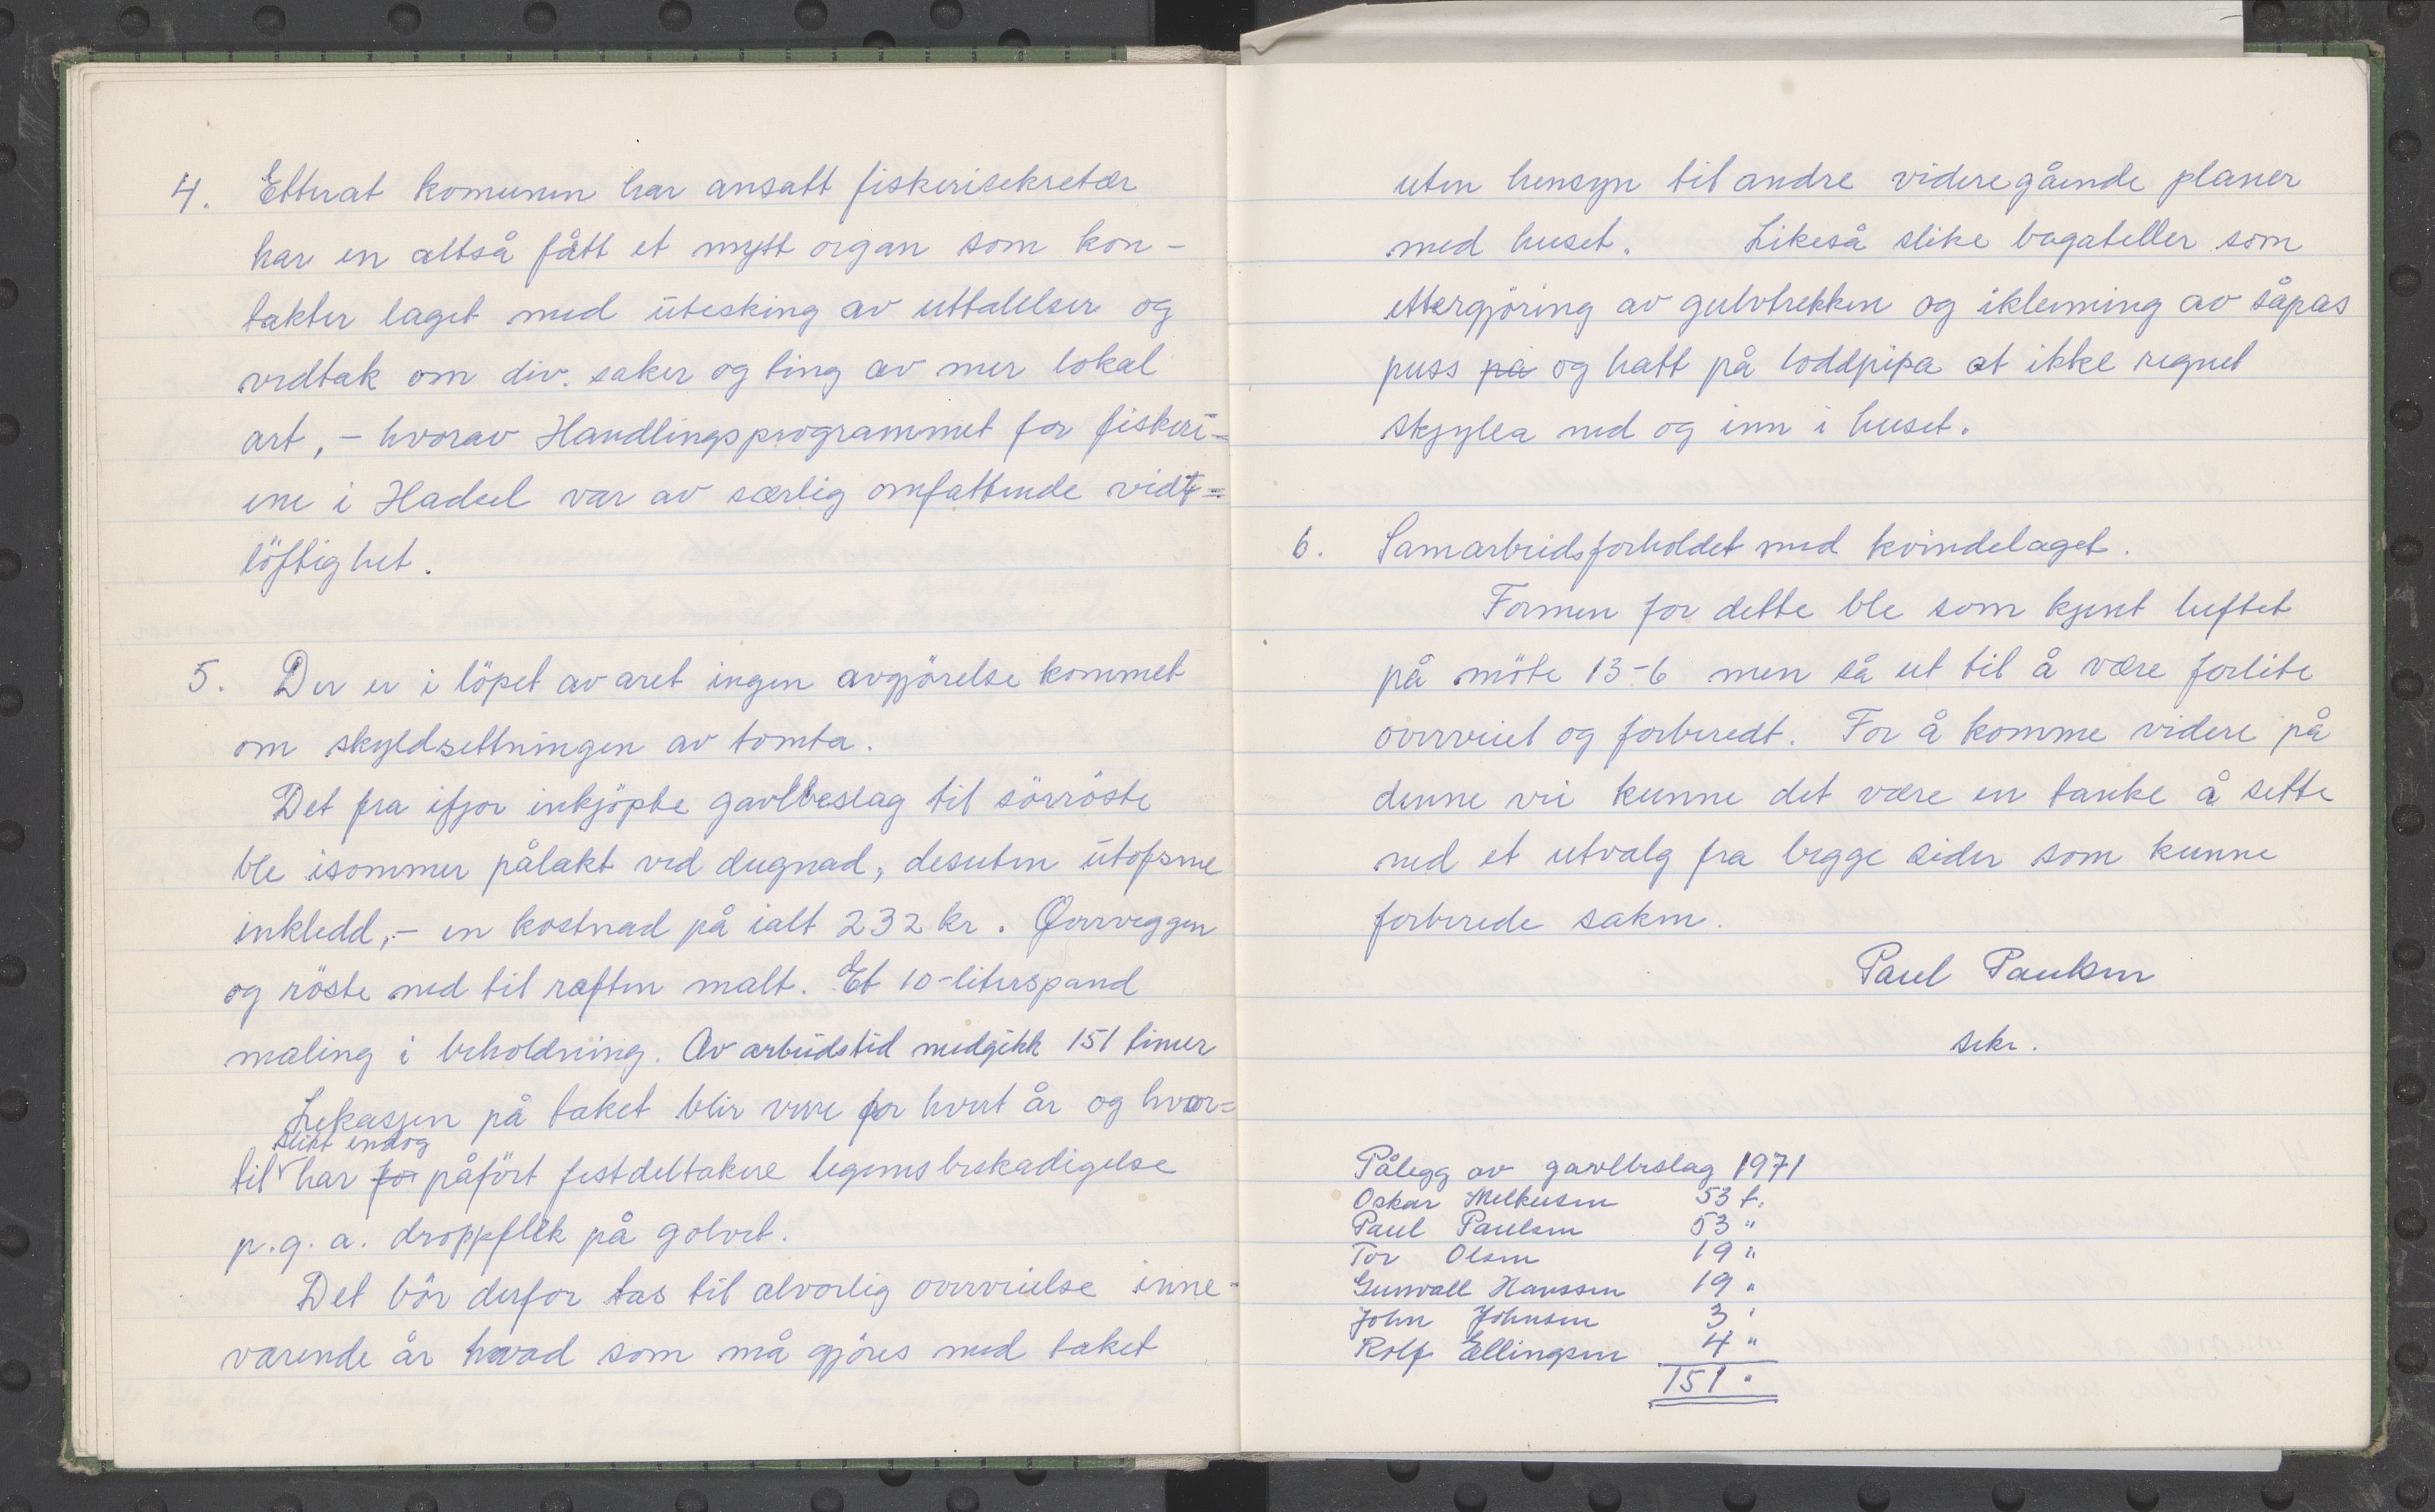 4. Etterat komunen har ansatt fiskerisekretær
har en altså fått et nytt organ som kon-
takter laget med utesking av uttalelser og
vedtak om div. saker og ting av mer lokal
art, - hvorav Handlingsprogrammet for fiskeri-
ene i Hadsel var av særlig omfattende vidt=
löftighet.
5. Der er i löpet av aret ingen avgjörelse kommet
om skyldsettningen av tomta.
Det fra ifjor inkjöpte gavlbeslag til sörröste
ble isommer pålakt ved dugnad, desuten utofsme
inkledd,- en kostnad på ialt 232 kr. Öovrveggen
og röste ned til raften malt. Et 10-literspand
maling i beholdning. Av arbeidstid medgikk 151 timer
Lekasjen på taket blir vere for hvert år og hvor=
slikt endog
til har for påfört festdeltakere legemsbeskadigelse
p.g.a. droppflekk på golvet.
Det bör derfor tas til alvorlig overveielse inne-
varende år hvad som må gjöres med taket
uten hensyn til andre videregående planer
med huset. Likeså slike bagateller som
ettergjöring av gulvtrekken og ikleming av såpas
puss på og hatt på loddpipa at ikke regnet
skjylla ned og inn i huset.
6. Samarbeidsforholdet med kvindelaget.
Formen for dette ble som kjent luftet
på möte 13-6 men så ut til å være forlite
overveiet og forberedt. For å komme videre på
denne vei kunne det være en tanke å sette
ned et utvalg fra begge sider som kunne
forberede saken.
Paul Paulsen
sekr.
Pålegg av gavlbeslag 1971
Oskar Melkersen 53 t.
Paul Paulsen 53 "
Tor Olsen 19 "
Gunvall Hanssen 19 "
John Johnsen 3 "
Rolf Ellingsen 4 "
151 "